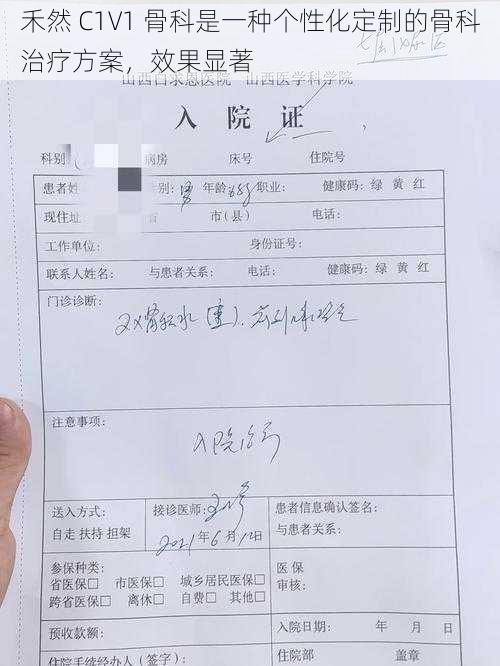 禾然 C1V1 骨科是一种个性化定制的骨科
治疗方案，效果显著
山西白求恩医院 山西医学科学院
入 院 证
科别 病房 床号 住院号
患者姓 别: 男 年龄 68岁 职业: 健康码: 绿 黄 红
现住址 省 市(县) 电话:
工作单位: 身份证号:
联系人姓名: 与患者关系: 电话: 健康码: 绿 黄 红
门诊诊断:
双肾积水(重).前列腺
注意事项:
入院治疗
送入方式: 接诊医师: 患者信息确认签名:
自走 扶持 担架 2021年6月12日 与患者关系:
参保种类: 医 保
省医保□ 市医保□ 城乡居民医保□ 审核:
跨省医保□ 离休□ 自费□ 其他□
预收款额: 入院日期: 年 月
住院手续经办人（签字）: 住院部 盖章